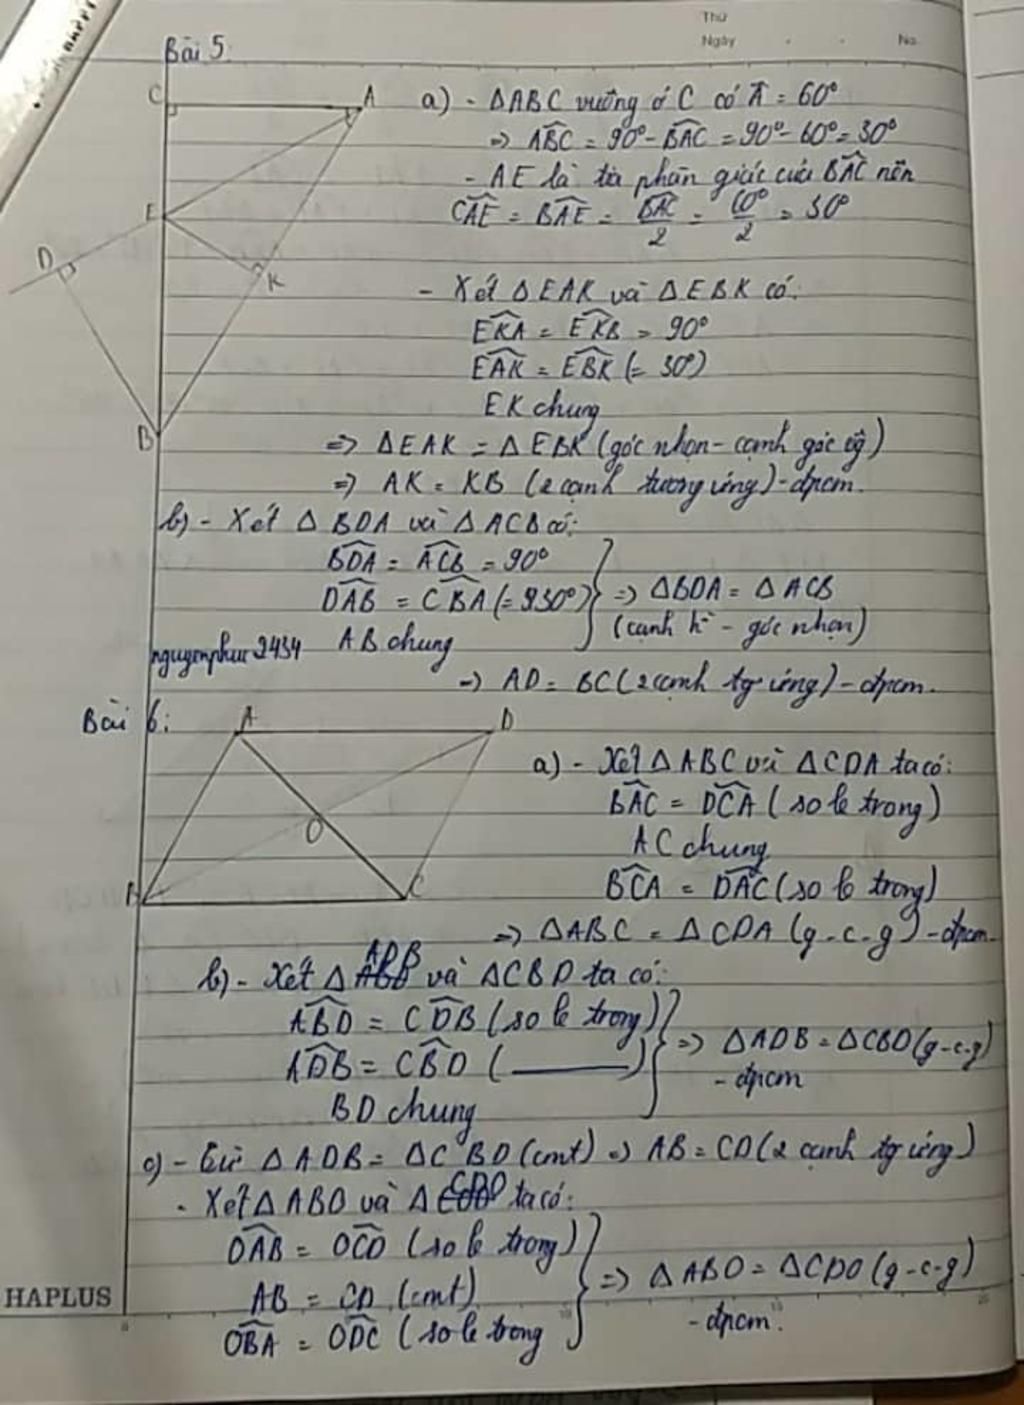 Thứ
Ngày No.
Bài 5:
C A
E
D
K
B
a) - ΔABC vuông ở C có Â = 60°
=> ABC = 90° - BAC = 90° - 60° = 30°
- AE là tia phân giác của BAC nên
CAE = BAE = BAC/2 = 60°/2 = 30°
- Xét ΔEAK và ΔEBK có:
EKA = EKB = 90°
EAK = EBK (= 30°)
EK chung
=> ΔEAK = ΔEBK (góc nhọn - cạnh góc vg)
=> AK = KB (2 cạnh tương ứng) - đpcm.
b) - Xét ΔBDA và ΔACB có:
BDA = ACB = 90°
DAB = CBA (= 30°) => ΔBDA = ΔACB
AB chung (cạnh h` - góc nhọn)
nguyenphuc2434
=> AD = BC (2 cạnh tg ứng) - đpcm.
Bài 6:
A D
O
B C
a) - Xét ΔABC và ΔCDA ta có:
BAC = DCA (so le trong)
AC chung
BCA = DAC (so le trong)
=> ΔABC = ΔCDA (g-c-g) - đpcm.
b) - Xét ΔADB và ΔCBD ta có:
ABD = CDB (so le trong)
ADB = CBD (———) => ΔADB = ΔCBD (g-c-g)
BD chung - đpcm
c) - Từ ΔADB = ΔCBD (cmt) => AB = CD (2 cạnh tg ứng)
- Xét ΔABO và ΔCDO ta có:
OAB = OCD (so le trong)
AB = CD (cmt) => ΔABO = ΔCDO (g-c-g)
OBA = ODC (so le trong - đpcm.
HAPLUS